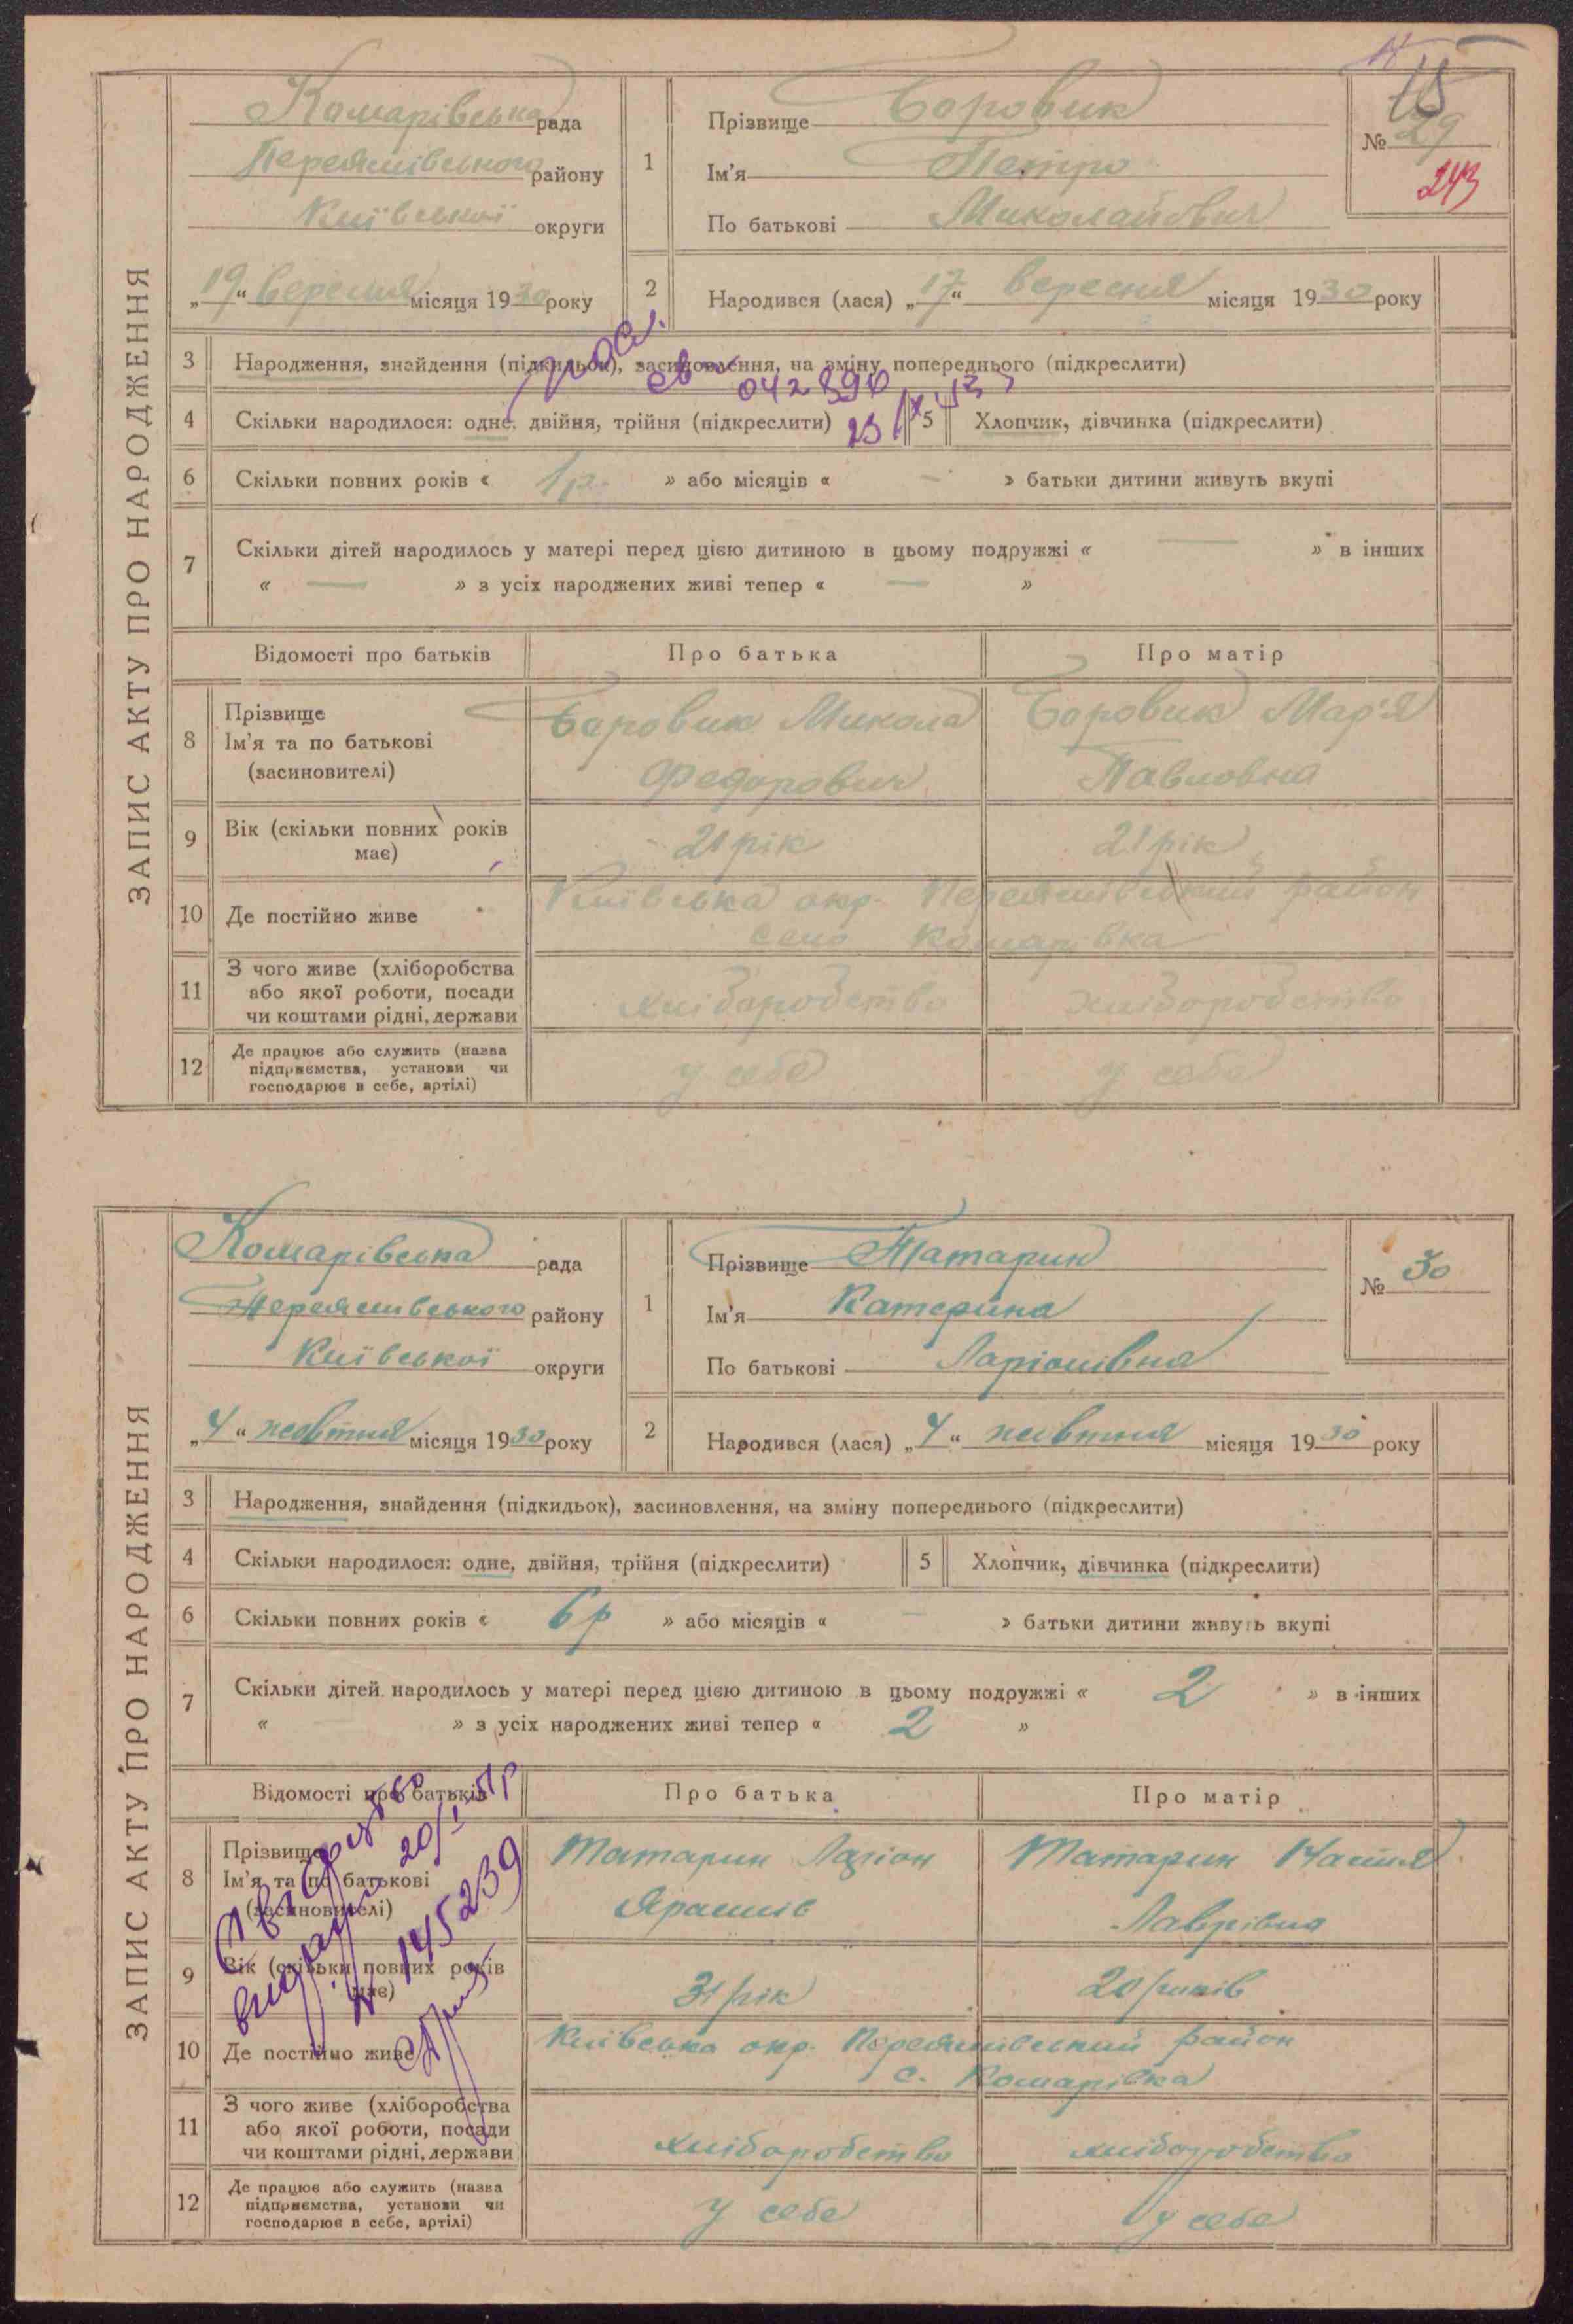 ЗАПИС АКТУ ПРО НАРОДЖЕННЯ
Комарівська рада
Переяслівського району
Київської округи
„19“ вересня місяця 1930 року
1
Прізвище Боровик
Ім'я Петро
По батькові Миколайович
15
№ 29
243
2
Народився (лася) „17“ вересня місяця 1930 року
3 Народження, знайдення (підкидьок), засиновлення, на зміну попереднього (підкреслити)
042890
4 Скільки народилося: одне, двійня, трійня (підкреслити) 5 Хлопчик, дівчинка (підкреслити)
6 Скільки повних років « 1 р. » або місяців « — » батьки дитини живуть вкупі
7 Скільки дітей народилось у матері перед цією дитиною в цьому подружжі « — » в інших
« — » з усіх народжених живі тепер « — »
Відомості про батьків Про батька Про матір
8 Прізвище
Ім'я та по батькові
(засиновителі)
Боровик Микола
Федорович
Боровик Мар'я
Павловна
9 Вік (скільки повних років
має)
21 рік 21 рік
10 Де постійно живе
Київська окр. Переяслівський район
село Комарівка
11 З чого живе (хліборобства
або якої роботи, посади
чи коштами рідні, держави
хліборобство хліборобство
12 Де працює або служить (назва
підприємства, установи чи
господарює в себе, артілі)
у себе у себе
ЗАПИС АКТУ ПРО НАРОДЖЕННЯ
Комарівська рада
Переяслівського району
Київської округи
„4“ жовтня місяця 1930 року
1
Прізвище Татарин
Ім'я Катерина
По батькові Ларіонівна
№ 30
2
Народився (лася) „4“ жовтня місяця 1930 року
3 Народження, знайдення (підкидьок), засиновлення, на зміну попереднього (підкреслити)
4 Скільки народилося: одне, двійня, трійня (підкреслити) 5 Хлопчик, дівчинка (підкреслити)
6 Скільки повних років « 6 р » або місяців « — » батьки дитини живуть вкупі
7 Скільки дітей народилось у матері перед цією дитиною в цьому подружжі « 2 » в інших
« — » з усіх народжених живі тепер « 2 »
Відомості про батьків Про батька Про матір
8 Прізвище
Ім'я та по батькові
(засиновителі)
Татарин Ларіон
Татарин Настя
Лаврівна
145239
9 Вік (скільки повних років
має)
31 рік 20 років
10 Де постійно живе
Київська окр. Переяслівський район
с. Комарівка
11 З чого живе (хліборобства
або якої роботи, посади
чи коштами рідні, держави
хліборобство хліборобство
12 Де працює або служить (назва
підприємства, установи чи
господарює в себе, артілі)
у себе у себе